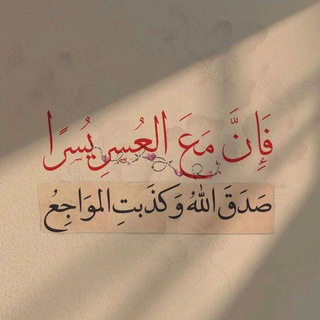 فَإِنَّ مَعَ العُسرِ يُسرًا
صَدَقَ اللهُ وَكذَبتِ المَواجِعُ